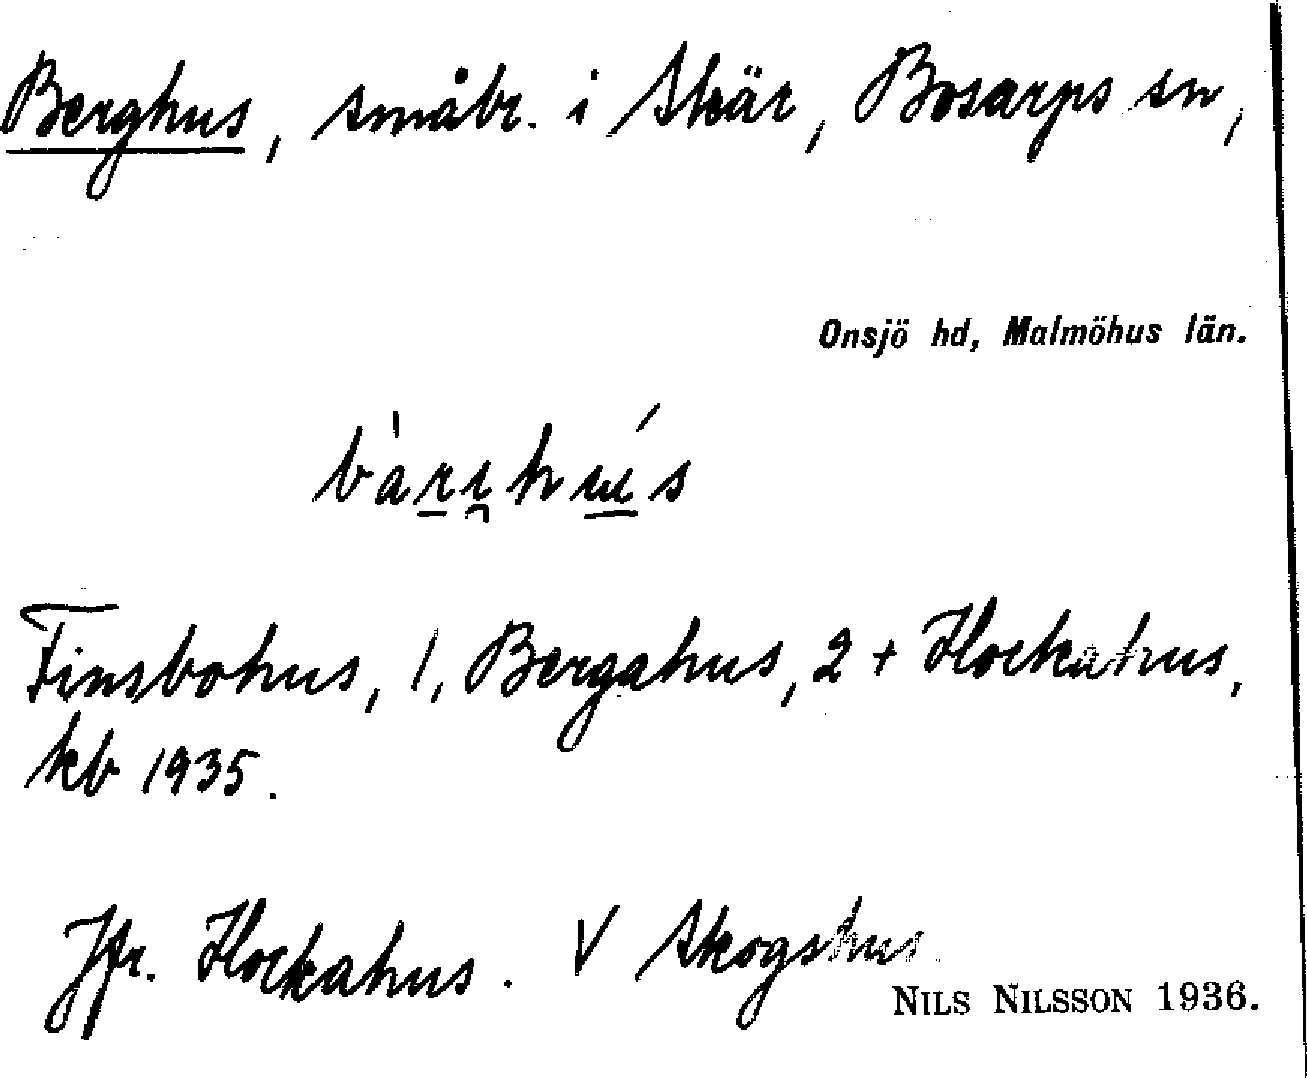 Berghus, småbr. i Skär, Bosarps sn,
Onsjö hd, Malmöhus län.
bàrr̯hu̲s
Finsbohus, 1, Bergahus, 2 + Klockahus,
kb 1935.
Jfr. Klockahus. V Skogshus.
NILS NILSSON 1936.